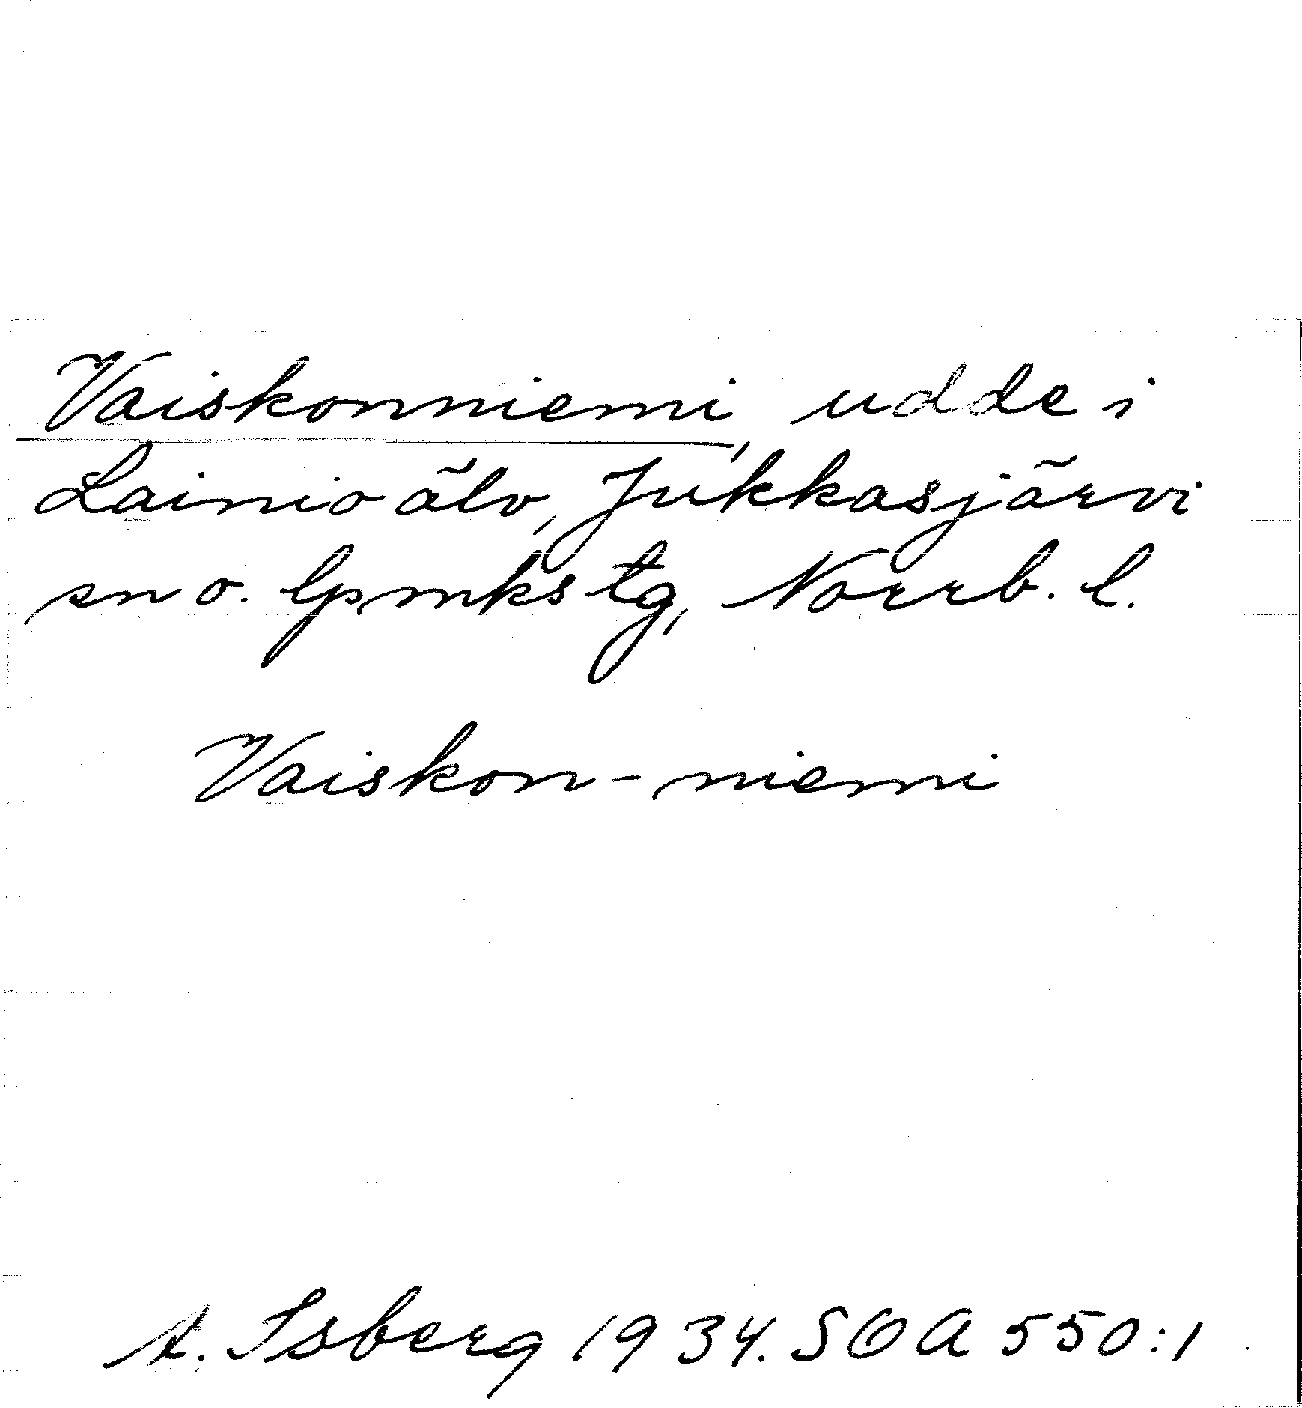 Vaiskonniemi, udde i
Lainio älv, Jukkasjärvi
sn o. lpmks tg, Norrb. l.
Vaiskon-niemi
A. Isberg 1934. SOA 550:1